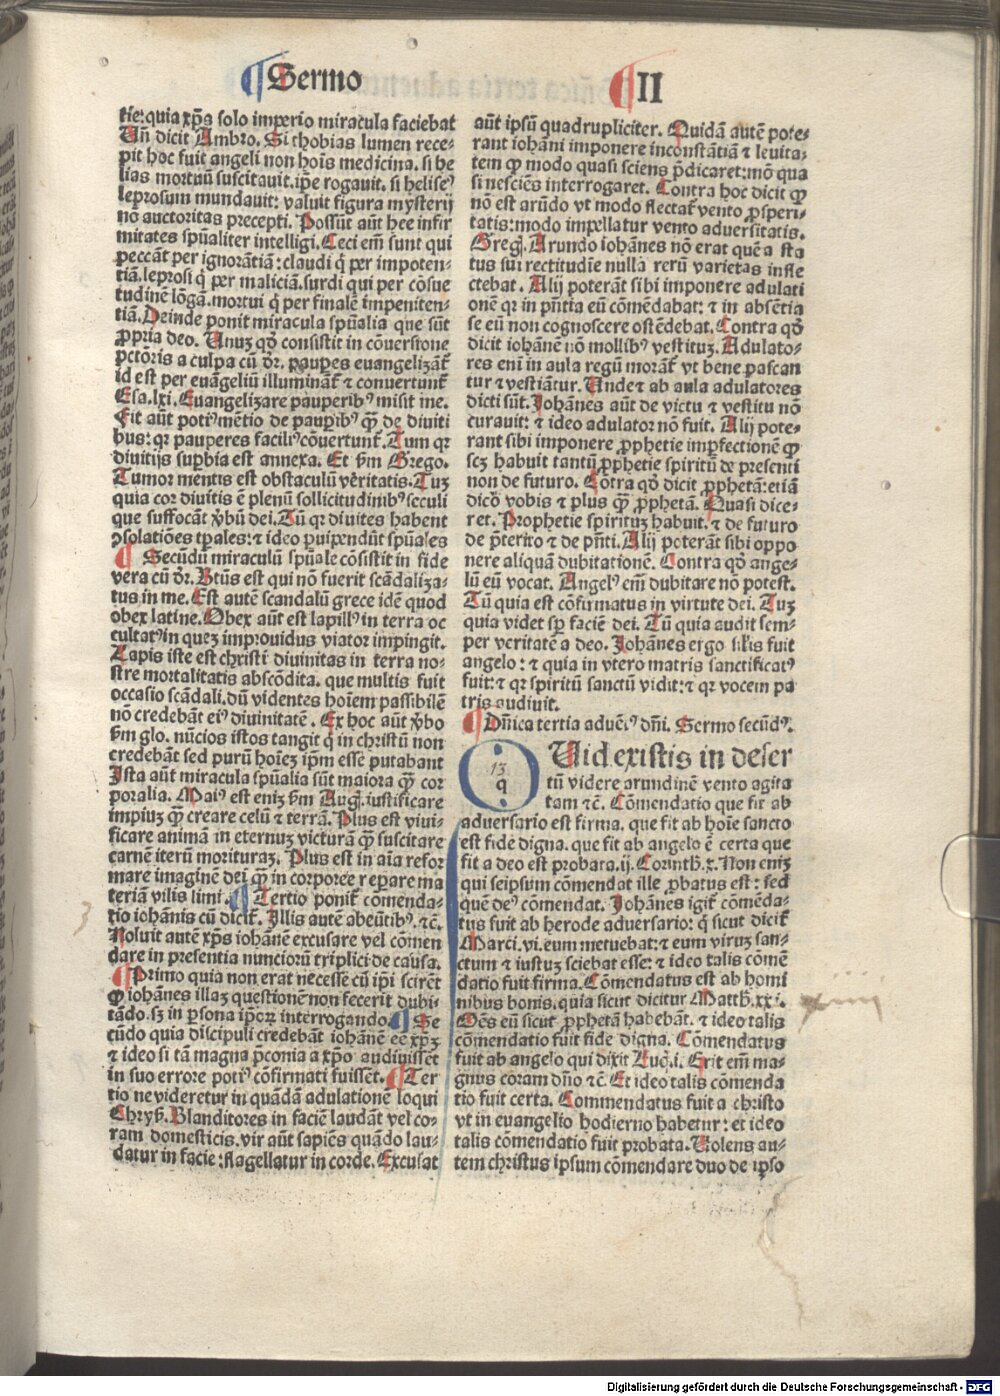 Sermo II
tie: quia xp̄s solo imperio miracula faciebat
Un̄ dicit Ambro. Si thobias lumen rece-
pit hoc fuit angeli non hoīs medicina. si he
lias mortuū suscitauit. ip̄e rogauit. si heliseꝰ
leprosum mundauit: valuit figura mysterij
nō auctoritas precepti. Possūt aūt hee infir
mitates spūaliter intelligi. Ceci em̄ sunt qui
peccāt per ignorātiā: claudi q̇ per impoten-
tiā. leprosi q̇ per maliciā. surdi qui per cōsue
tudinē lōgā. mortui q̇ per finalē impeniten-
tiā. Deinde ponit miracula spūalia que sūt
ꝓpria deo. Unuꝫ qđ consistit in cōuersione
pctōris a culpa cū dr̄. paupes euangelizāt̄
id est per euāgeliū illumināt̄ ⁊ conuertunt̄
Esa. lxi. Euangelizare pauperibꝰ misit me.
Fit aūt potiꝰ mētio de paupibꝰ ꝙ̄ de diuiti
bus: qꝛ pauperes faciliꝰ cōuertunt̄. Tum qꝛ
diuitijs supbia est annexa. Et ẜm Grego.
Tumor mentis est obstaculū veritatis. Tuꝫ
quia cor diuitis ē plenū sollicitudinibꝰ seculi
que suffocāt v̄bū dei. Tū qꝛ diuites habent
ꝯsolatiōes tp̄ales: ⁊ ideo puipendūt spūales
¶ Secūdū miraculū spūale cōsistit in fide
vera cū dr̄. Btūs est qui nō fuerit scādaliza-
tus in me. Est autē scandalū grece idē quod
obex latine. Obex aūt est lapillꝰ in terra oc
cultatꝰ in queꝫ improuidus viator impingit.
Lapis iste est christi diuinitas in terra no-
stre mortalitatis abscōdita. que multis fuit
occasio scādali. dū videntes hoīem passibilē
nō credebāt eiꝰ diuinitatē. Ex hoc aūt v̄bo
ẜm glo. nūcios istos tangit q̇ in christū non
credebāt sed purū hoīeꝫ ip̄m esse putabant
Ista aūt miracula spūalia sūt maiora ꝙ̄ cor
poralia. Maiꝰ est eniꝫ ẜm Aug. iustificare
impiuꝫ ꝙ̄ creare celū ⁊ terrā. Plus est viui-
ficare animā in eternuꝫ victurā ꝙ̄ suscitare
carnē iterū morituraꝫ. Plus est in aīa refor
mare imaginē dei ꝙ̄ in corpore reparare ma
teriā vilis limi. ¶ Tertio ponit̄ comenda-
tio iohānis cū dicit̄. Illis autē abeūtibꝰ. ⁊c̄.
Noluit autē xp̄s iohānē excusare vel cōmen
dare in presentia nunciorū triplici de causa.
¶ Primo quia non erat necesse cū ip̄i scirēt
ꝙ iohānes illaꝫ questionē non fecerit dubi-
tādo. sꝫ in ꝑsona ip̄oꝝ interrogando. ¶ Se
cūdo quia discipuli credebāt iohānē eē xp̄ꝫ
⁊ ideo si tā magna p̄conia a xp̄o audiuissēt
in suo errore potiꝰ cōfirmati fuissēt. ¶ Ter
tio ne videretur in quādā adulationē loqui
Chryẜ. Blanditores in faciē laudāt vel co-
ram domesticis. vir aūt sapiēs quādo lau-
datur in facie: flagellatur in corde. Excusat
aūt ipsū quadrupliciter. Quidā autē pote-
rant iohāni imponere inconstātiā ⁊ leuita-
tem ꝙ modo quasi sciens p̄dicaret: mō qua
si nesciēs interrogaret. Contra hoc dicit ꝙ
nō est arūdo vt modo flectat̄ vento ꝓsperi-
tatis: modo impellatur vento aduersitatis.
Greg. Arundo iohānes nō erat quē a sta
tus sui rectitudīe nulla rerū varietas infle
ctebat. Alij poterāt sibi imponere adulati
onē qꝛ in pn̄tia eū cōmēdabat: ⁊ in absētia
se eū non cognoscere ostēdebat. Contra qđ
dicit iohānē nō mollibꝰ vestituꝫ. Adulato-
res eni in aula regū morāt̄ vt bene pascan
tur ⁊ vestiātur. Unde ⁊ ab aula adulatores
dicti sūt. Johānes aūt de victu ⁊ vestitu nō
curauit: ⁊ ideo adulator nō fuit. Alij pote-
rant sibi imponere ꝓphetie imꝑfectionē ꝙ
scꝫ habuit tantū ꝓphetie spiritū de presenti
non de futuro. Cōtra qđ dicit ꝓphetā: etiā
dico vobis ⁊ plus ꝙ̄ ꝓphetā. Quasi dice-
ret. Prophetie spirituꝫ habuit. ⁊ de futuro
de p̄terito ⁊ de pn̄ti. Alij poterāt sibi oppo
nere aliquā dubitationē. Contra qđ ange-
lū eū vocat. Angelꝰ em̄ dubitare nō potest.
Tū quia est cōfirmatus in virtute dei. Tuꝫ
quia videt sꝑ faciē dei. Tū quia audit sem-
per veritatē a deo. Johānes ergo sil̄is fuit
angelo: ⁊ quia in vtero matris sanctificatꝰ
fuit: ⁊ qꝛ spiritū sanctū vidit: ⁊ qꝛ vocem pa
tris audiuit.
¶ Dn̄ica tertia aduētꝰ dn̄i. Sermo secūdꝰ.
13
q
Uid existis in deser
tū videre arundinē vento agita
tam ⁊c̄. Cōmendatio que fit ab
aduersario est firma. que fit ab hoīe sancto
est fide digna. que fit ab angelo ē certa que
fit a deo est probata. ij. Corinth. x. Non eniꝫ
qui seipsum cōmendat ille ꝓbatus est: sed
quē deꝰ cōmendat. Johānes igit̄ cōmēda-
tus fuit ab herode aduersario: q̇ sicut dicit̄
Marci. vi. eum metuebat: ⁊ eum viruꝫ san-
ctum ⁊ iustuꝫ sciebat esse: ⁊ ideo talis cōmē
datio fuit firma. Cōmendatus est ab homi
nibus bonis. quia sicut dicitur Matth. xxi.
Oēs eū sicut ꝓphetā habebāt. ⁊ ideo talis
cōmendatio fuit fide digna. Cōmendatus
fuit ab angelo qui dixit Luc. i. Erit em̄ ma-
gnus coram dn̄o ⁊c̄. Et ideo talis cōmenda
tio fuit certa. Commendatus fuit a christo
vt in euangelio hodierno habetur: et ideo
talis cōmendatio fuit probata. Uolens au-
tem christus ipsum cōmendare duo de ipso
Digitalisierung gefördert durch die Deutsche Forschungsgemeinschaft - DFG